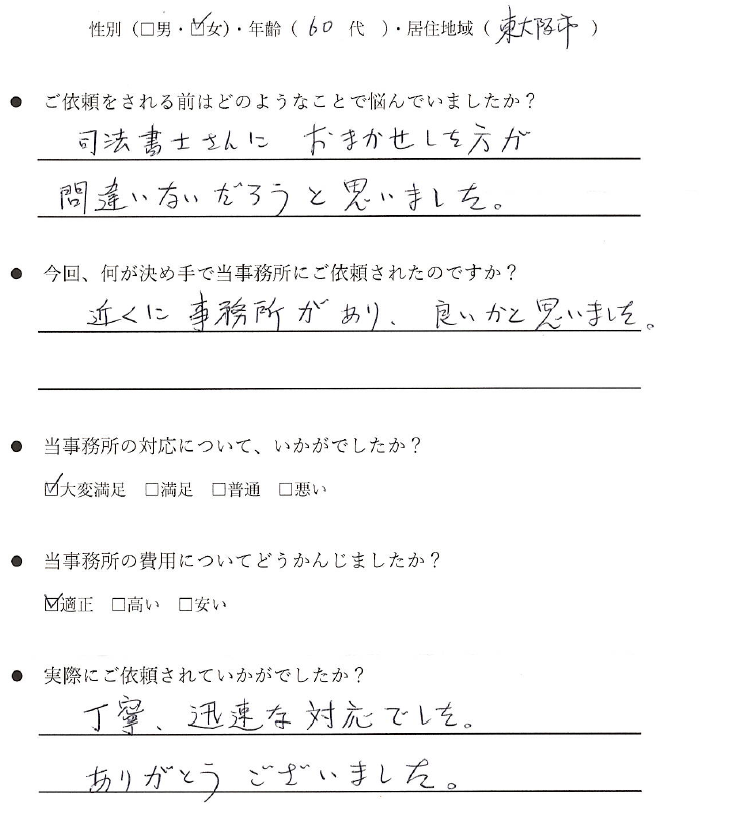 性別（□男・☑女）・年齢（ 60 代 ）・居住地域（ 東大阪市 ）
● ご依頼をされる前はどのようなことで悩んでいましたか？
司法書士さんに おまかせした方が
間違いないだろうと思いました。
● 今回、何が決め手で当事務所にご依頼されたのですか？
近くに事務所があり、良いかと思いました。
● 当事務所の対応について、いかがでしたか？
☑大変満足 □満足 □普通 □悪い
● 当事務所の費用についてどうかんじましたか？
☑適正 □高い □安い
● 実際にご依頼されていかがでしたか？
丁寧、迅速な対応でした。
ありがとうございました。